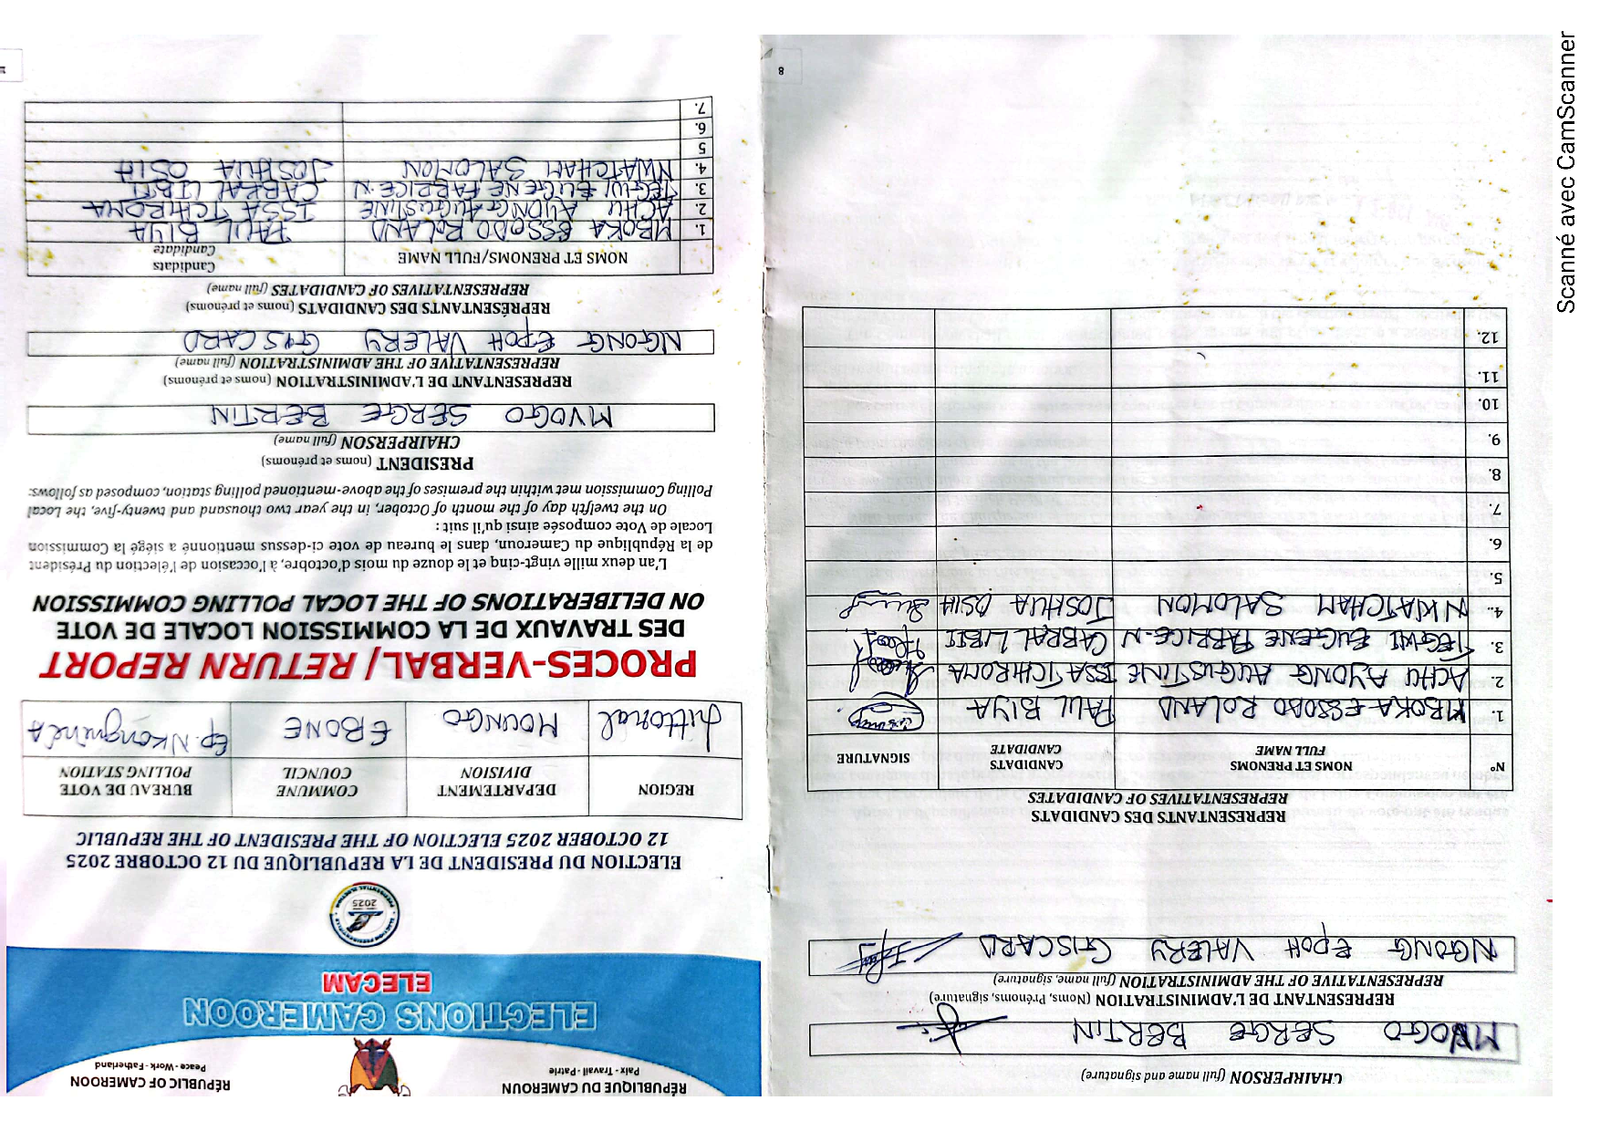 RÉPUBLIQUE DU CAMEROUN
Paix - Travail - Patrie
RÉPUBLIC OF CAMEROON
Peace - Work - Fatherland
ELECTIONS CAMEROON
ELECAM
2025
ELECTION DU PRESIDENT DE LA REPUBLIQUE DU 12 OCTOBRE 2025
12 OCTOBER 2025 ELECTION OF THE PRESIDENT OF THE REPUBLIC
REGION DEPARTEMENT DIVISION COMMUNE COUNCIL BUREAU DE VOTE POLLING STATION
Littoral MOUNGO EBONE
PROCES-VERBAL/ RETURN REPORT
DES TRAVAUX DE LA COMMISSION LOCALE DE VOTE
ON DELIBERATIONS OF THE LOCAL POLLING COMMISSION
L'an deux mille vingt-cinq et le douze du mois d'octobre, à l'occasion de l'élection du Président
de la République du Cameroun, dans le bureau de vote ci-dessus mentionné a siégé la Commission
Locale de Vote composée ainsi qu'il suit :
On the twelfth day of the month of October, in the year two thousand and twenty-five, the Local
Polling Commission met within the premises of the above-mentioned polling station, composed as follows:
PRESIDENT (noms et prénoms)
CHAIRPERSON (full name)
MVOGO SERGE BERTIN
REPRESENTANT DE L'ADMINISTRATION (noms et prénoms)
REPRESENTATIVE OF THE ADMINISTRATION (full name)
NGONG EPOH VALERY GISCARD
REPRESENTANTS DES CANDIDATS (noms et prénoms)
REPRESENTATIVES OF CANDIDATES (full name)
NOMS ET PRENOMS/FULL NAME Candidats Candidate
1. MBOKA ESSODO ROLAND PAUL BIYA
2. ACHU AYONG AUGUSTINE ISSA TCHIROMA
3. TEGWI EUGENE FABRICE.N CABRAL LIBII
4. NWATCHAM SALOMON JOSHUA OSIH
5
6.
7.
CHAIRPERSON (full name and signature)
MVOGO SERGE BERTIN
REPRESENTANT DE L'ADMINISTRATION (Noms, Prénoms, signature)
REPRESENTATIVE OF THE ADMINISTRATION (full name, signature)
NGONG EPOH VALERY GISCARD
REPRESENTANTS DES CANDIDATS
REPRESENTATIVES OF CANDIDATES
N° NOMS ET PRENOMS FULL NAME CANDIDATS CANDIDATE SIGNATURE
1. MBOKA ESSOBO ROLAND PAUL BIYA
2. ACHU AYONG AUGUSTINE ISSA TCHIROMA
3. TEGWI EUGENE FABRICE.N CABRAL LIBII
4. NWATCHAM SALOMON JOSHUA OSIH
5.
6.
7.
8.
9.
10.
11.
12.
8
Scanné avec CamScanner